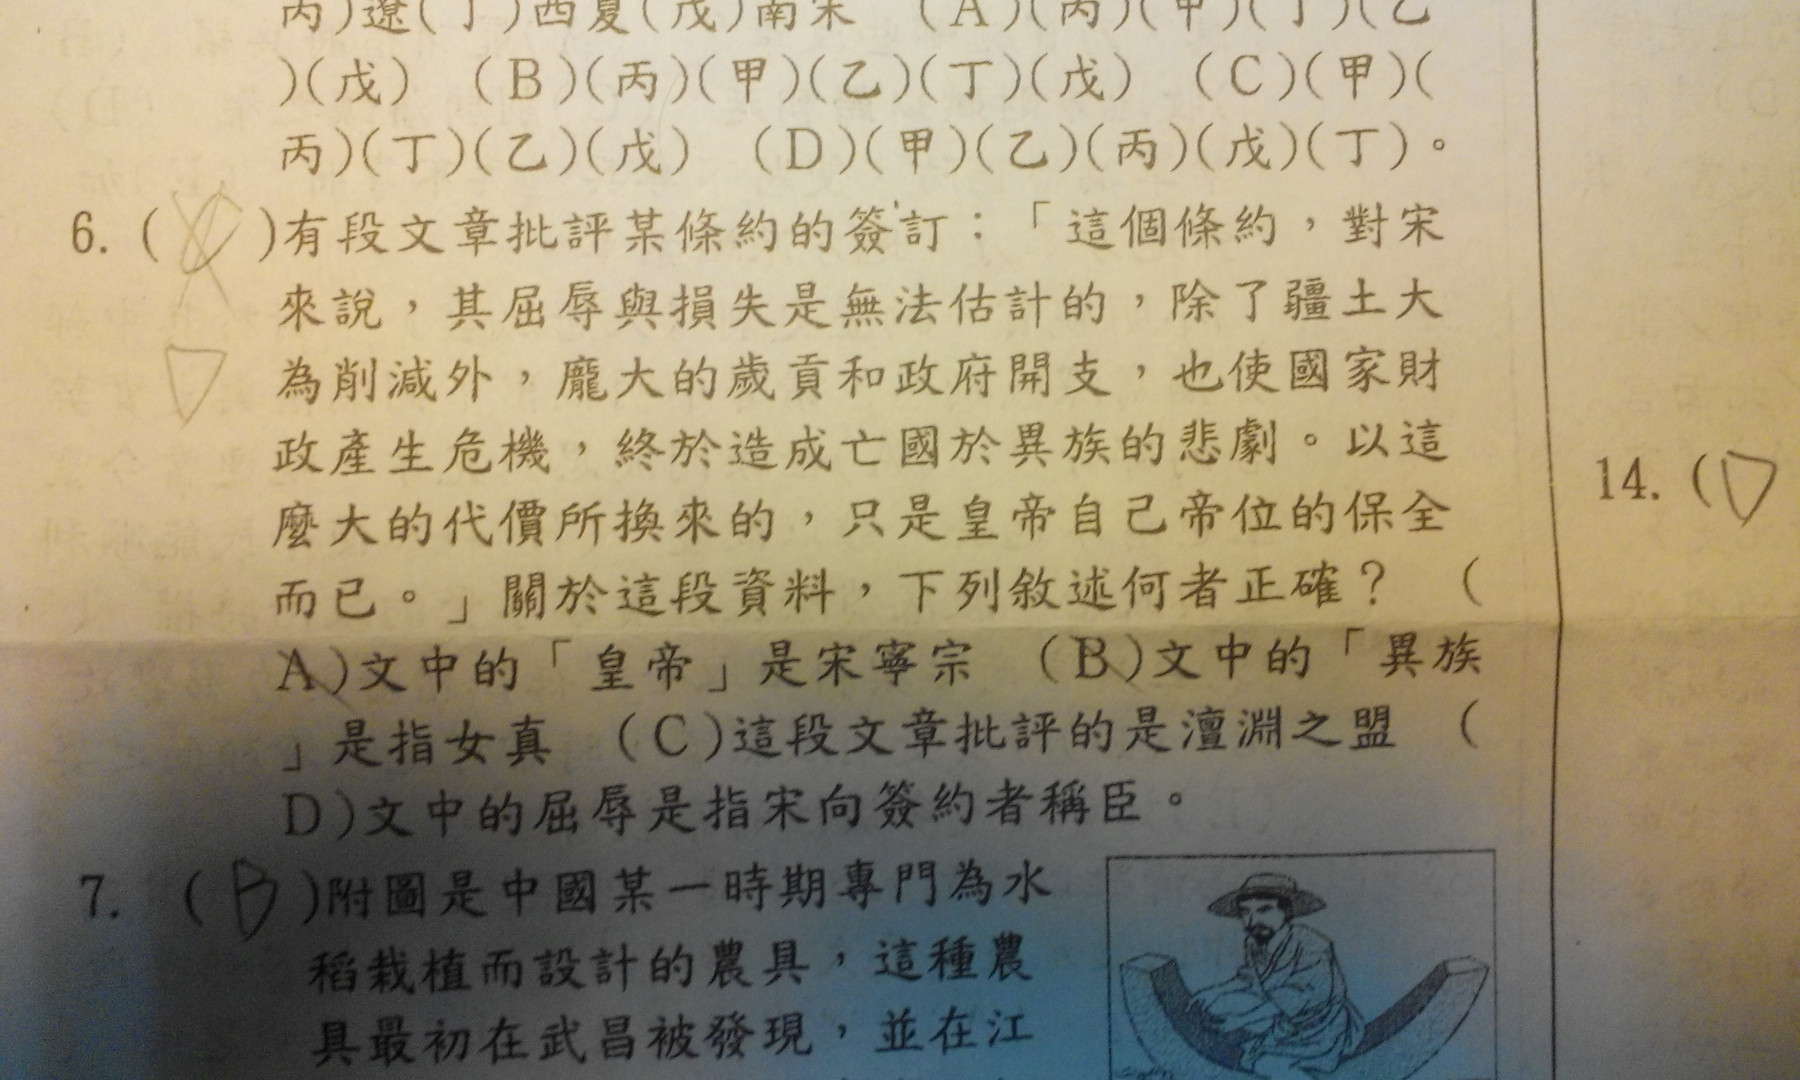 丙)遼(丁)西夏(戊)南宋 (A)(丙)(甲)(丁)(乙
)(戊) (B)(丙)(甲)(乙)(丁)(戊) (C)(甲)(
丙)(丁)(乙)(戊) (D)(甲)(乙)(丙)(戊)(丁)。
6. ( )有段文章批評某條約的簽訂：「這個條約，對宋
來說，其屈辱與損失是無法估計的，除了疆土大
為削減外，龐大的歲貢和政府開支，也使國家財
政產生危機，終於造成亡國於異族的悲劇。以這
麼大的代價所換來的，只是皇帝自己帝位的保全
而已。」關於這段資料，下列敘述何者正確？ (
A)文中的「皇帝」是宋寧宗 (B)文中的「異族
」是指女真 (C)這段文章批評的是澶淵之盟 (
D)文中的屈辱是指宋向簽約者稱臣。
D
7. (B)附圖是中國某一時期專門為水
稻栽植而設計的農具，這種農
具最初在武昌被發現，並在江
14. (D